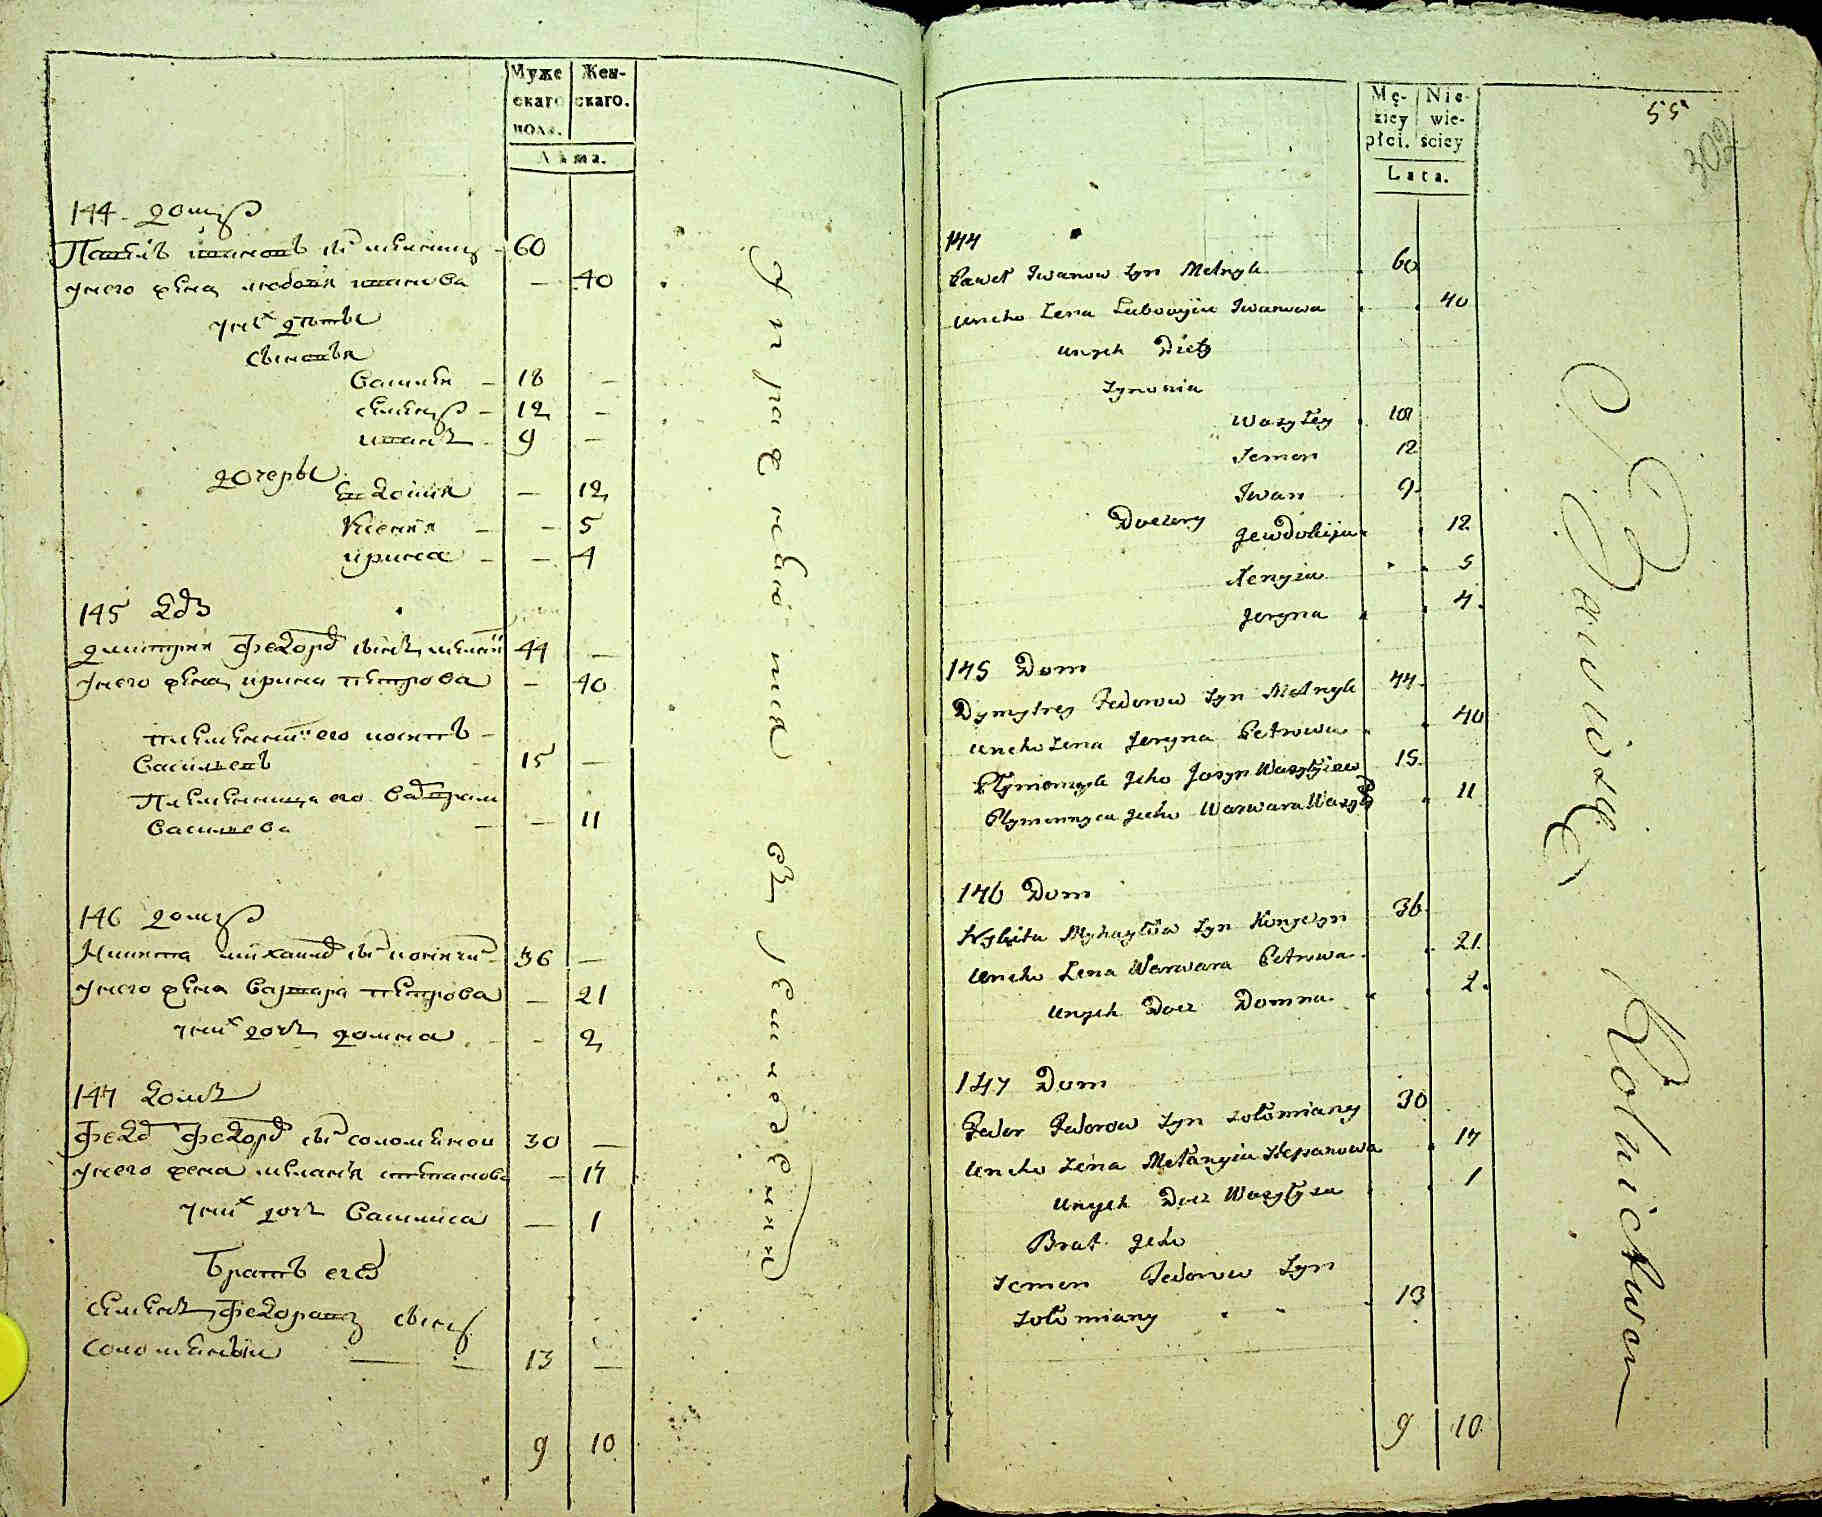 Муже
скаго
пола.
Жен-
скаго.
Лѣта.
144 домъ
Павелъ Ивановъ сынъ мелникъ - 60
у него жена любовія иванова — 40
у них дѣты
сыновья
Василей — 18 —
семенъ — 12 —
иванъ - 9 —
дочеры Евдокия — 12
Ксения — — 5
ирина — — 4
145 дом
дмитрий Федоров сынъ мелник 44 —
у него жена ирина петрова — 40
племенник его иосипъ —
Васильевъ 15 —
Племенница его Варвара
Василева — — 11
146 домъ
Никита михайлов сынъ 36 —
у него жена Варвара петрова — 21
у них дочь домна - 2
147 домъ
Федор Федоров сынъ соломяной 30 —
у него жена мелания степанова — 17
у них дочь Василиса — 1
Братъ его
семенъ Федоровъ сынъ
соломяный — 13 —
9 10
Управитель
Mę-
zkiey
płci.
Nie-
wie-
ściey
Lata.
55
302
144
Paweł Iwanow Syn Melnyk . 60
Uneho Żena Lubowyia Iwanowa . . 40
Unych Diety
Synowia
Wasyłey . 18
Semen 12
Iwan 9.
Doczery Jewdokija . 12
Xenyia . . 5
Jeryna . . 4.
145 Dom
Dymytrey Fedorow Syn Melnyk 44.
Uneho Żena Jeryna Petrowa . 40
Płymennyk Jeho Josyp Wasyłyiew 15.
Płymennyca Jeho Warwara Wasył . 11
146 Dom
Nykita Myhayłow Syn 36.
Uneho Żena Warwara Petrowa . 21.
Unych Docz Domna . . 2.
147 Dom
Fedor Fedorow Syn Sołomiany 30
Uneho Żena Mełanyia Stepanowa . 17
Unych Docz Wasyłysa . . 1
Brat Jeho
Semen Fedorow Syn
Sołomiany . - . 13
9 10